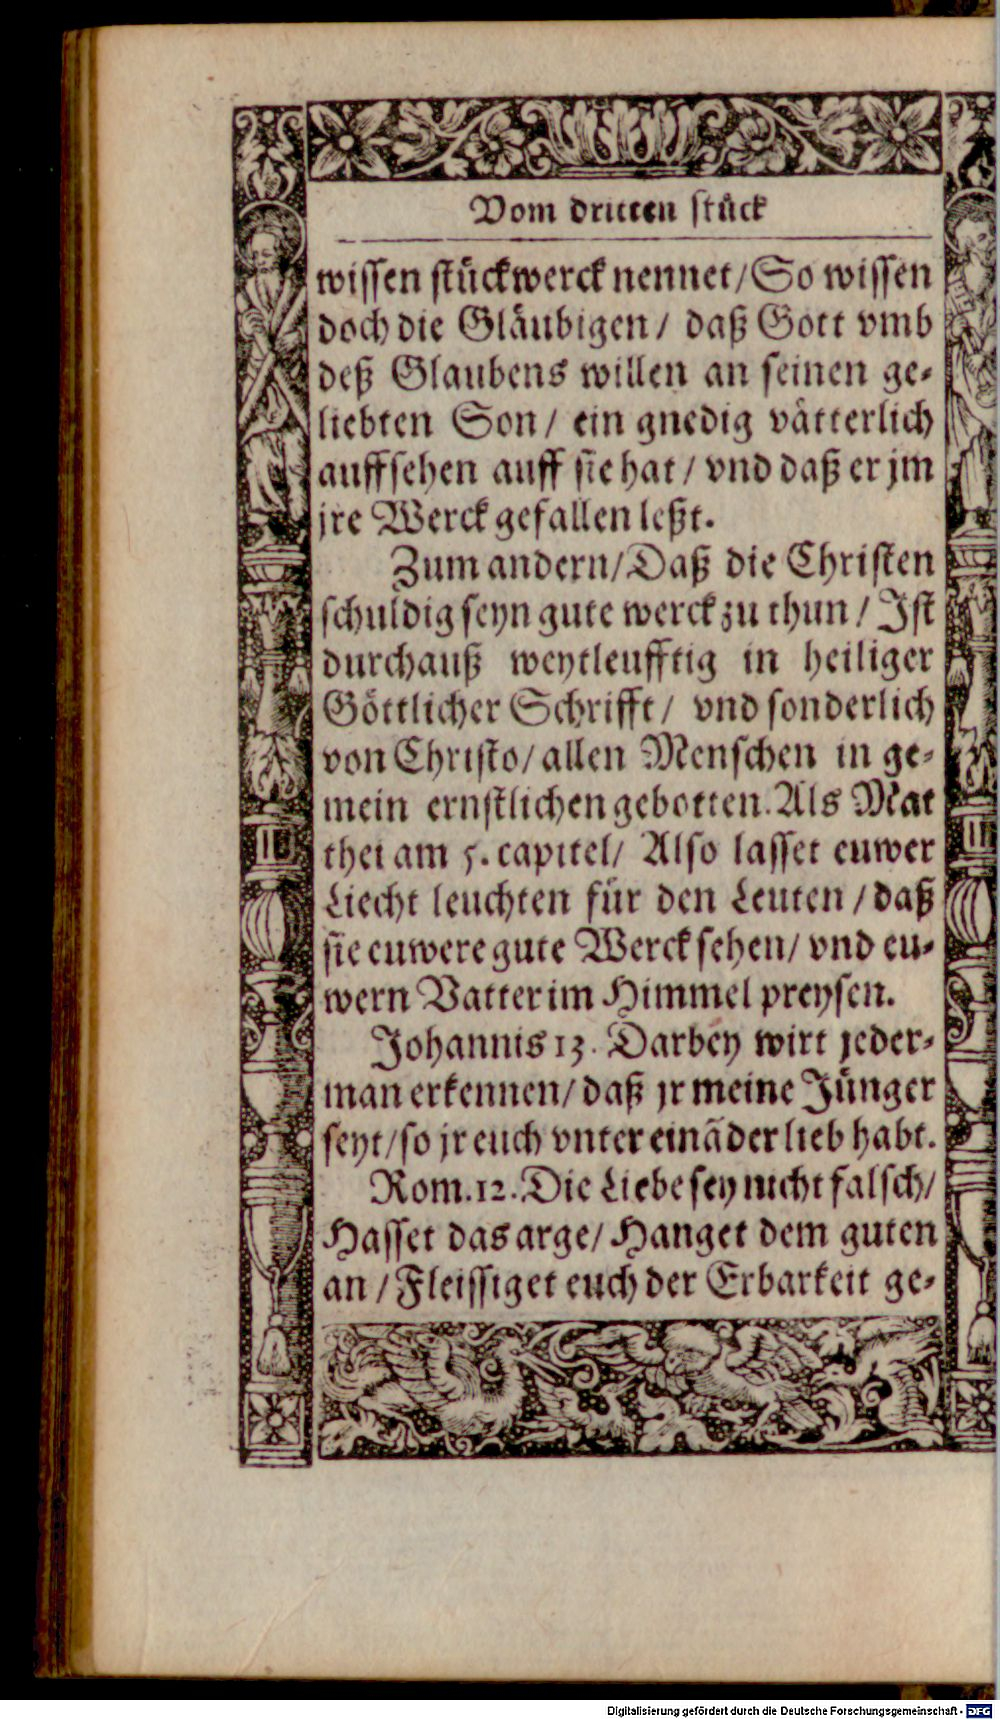 Vom dritten stück
wissen stückwerck nennet/So wissen
doch die Gläubigen/ daß Gott vmb
deß Glaubens willen an seinen ge-
liebten Son/ ein gnedig vätterlich
auffsehen auff sie hat/ vnd daß er jm
jre Werck gefallen leßt.
Zum andern/Daß die Christen
schuldig seyn gute werck zu thun/ Ist
durchauß weytleufftig in heiliger
Göttlicher Schrifft/ vnd sonderlich
von Christo/ allen Menschen in ge-
mein ernstlichen gebotten. Als Mat
thei am 5. capitel/ Also lasset euwer
Liecht leuchten für den Leuten/ daß
sie euwere gute Werck sehen/ vnd eu-
wern Vatter im Himmel preysen.
Johannis 13. Darbey wirt jeder-
man erkennen/ daß jr meine Jünger
seyt/so jr euch vnter einãder lieb habt.
Rom. 12. Die Liebe sey nicht falsch/
Hasset das arge/ Hanget dem guten
an/ Fleissiget euch der Erbarkeit ge-
Digitalisierung gefördert durch die Deutsche Forschungsgemeinschaft - DFG